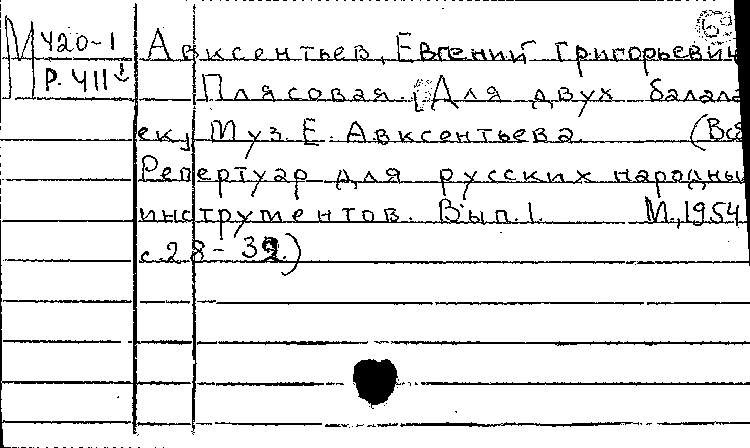 М 420-1
Р. 411
Авксентьев, Евгений Григорьевич
Плясовая. [Для двух балала
ек] Муз. Е. Авксентьева. (Вс
Репертуар для русских народны
инструментов. Вып. 1. М., 1954
с. 28-32.)